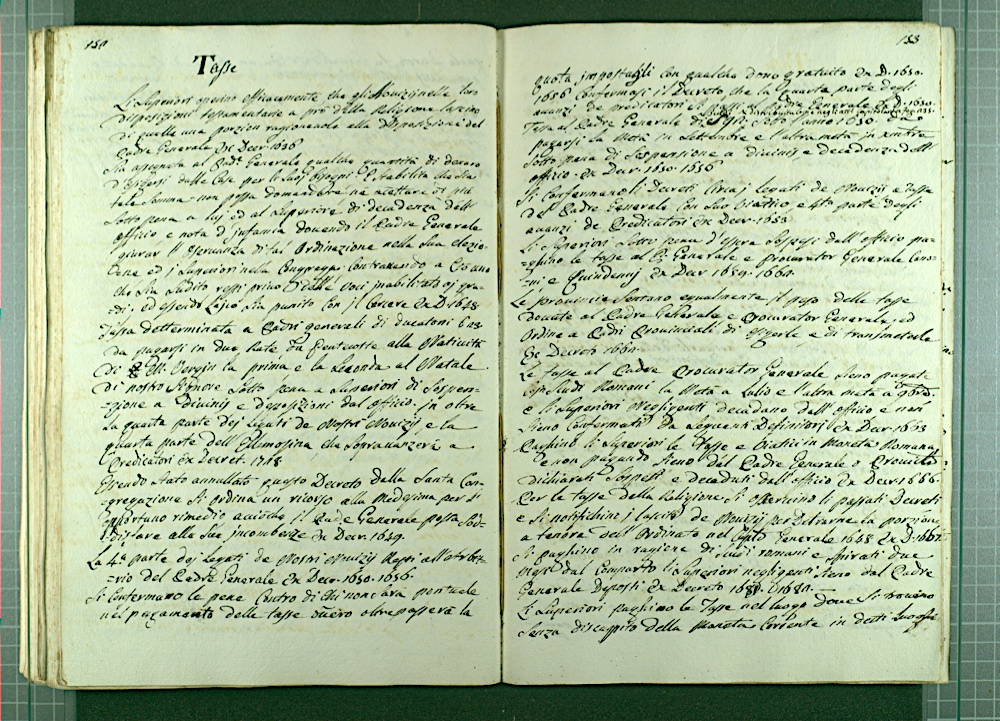 154
Tasse
Li Superiori operino efficacemente che gli Novizij nelle loro
disposizioni testamentarie a prò della Religione lascino
di quelle una porzion ragionevole alla disposizione del
Padre Generale Ex Decr 1636
Sia assegnata al Pad.e Generale qualche quantità di denaro
d'esigersi dalle Case per li suoi bisogni e stabilita che sia
tale somma non possa domandare ne accettare di più
sotto pena a lui ed al Superiore di decadenza dell'
officio e nota d'infamia dovendo il Padre Generale
giurar l'osservanza di tal Ordinazione nella sua elezio-
ne ed i Superiori nella Congrega
che sia subito
di, ed essendo Laico sia punito con il Carcere Ex D 1648
Tassa determinata a Padri generali di ducatoni
da pagarsi in due Rate la Pentecoste alla Natività
di M. Vergin la prima e la seconda al Natale
di nostro Signore sotto pena a Superiori di Sospen-
zione a Divinis e deposizioni dal officio. in oltre
la quarta parte dei Legati de Nostri Novizij e la
quarta parte dell'Elemosina che sopravanzerà a
Predicatori Ex Decret. 1748
Essendo stato annullato questo Decreto dalla Santa Con-
gregazione si ordina un ricorso alla Medesima per l'
opportuno rimedio acciochè il Padre Generale possa sod-
disfare alla sue incombenze Ex Decr. 1649.
La 4a parte dei Legati de Nostri Novizij resti all'arbit-
rio del Padre Generale Ex Decr. 1650. 1656.
Si confermano le pene contro di chi non sarà pontuale
nel pagamento delle tasse ò vero oltrepasserà la
155
quota impostagli con qualche dono gratuito Ex D. 1650.
1656 Confermasi il Decreto che la quarta parte degli
avanzi de predicatori si
Tassa al Padre Generale di
pagarsi la Metà in Settembre e l'altra metà in
sotto pena di Sospensione a divinis e decadenza dell'
officio Ex Decr 1650. 1656
Si Confermano li Decreti circa i Legati de Novizij e tassa
del Padre Generale con suo viatico e 4ta parte degli
avanzi de Predicatori Ex Decr. 1653
Li Superiori sotto pena d'essere sospesi dall'officio pa-
ghino le tasse al P. Generale e Procurator Generale
e Quindenij Ex Decr 1659. 1660.
Le provincie sentano egualmente il peso delle tasse
dovute al Padre Generale e Procurator Generale, ed
Ordine a Padri Provinciali di esigerle e di transmeterle
Ex Decreto 1660.
Le tasse al Padre Procurator Generale sieno pagate
con Scudi Romani la Metà a Luglio e l'altra metà a
e li Superiori Negligenti decadano dall'officio e non
sieno Confermati da seguenti Definitori Ex Decr 1663
Paghino li Superiori le Tasse e viatici in Moneta Romana
e non pagando sieno dal Padre Generale o
dichiarati Sospesi e decaduti dall'officio Ex Decr. 1666.
Per le tasse della Religione si osservino li passati Decreti
e si notifichino i lasciti de Novizij per detrarne la porzione
a tenore dell'Ordinato nel Capito Generale 1648 Ex D. 1667
Si paghino in ragione di scudi romani e spirati due
Mesi dal Conparto li Superiori negligenti sieno dal Padre
Generale Deposti Ex Decreto
Li Superiori paghino le Tasse nel luogo dove si trovino
senza discapito della Moneta Corrente in detti Luoghi